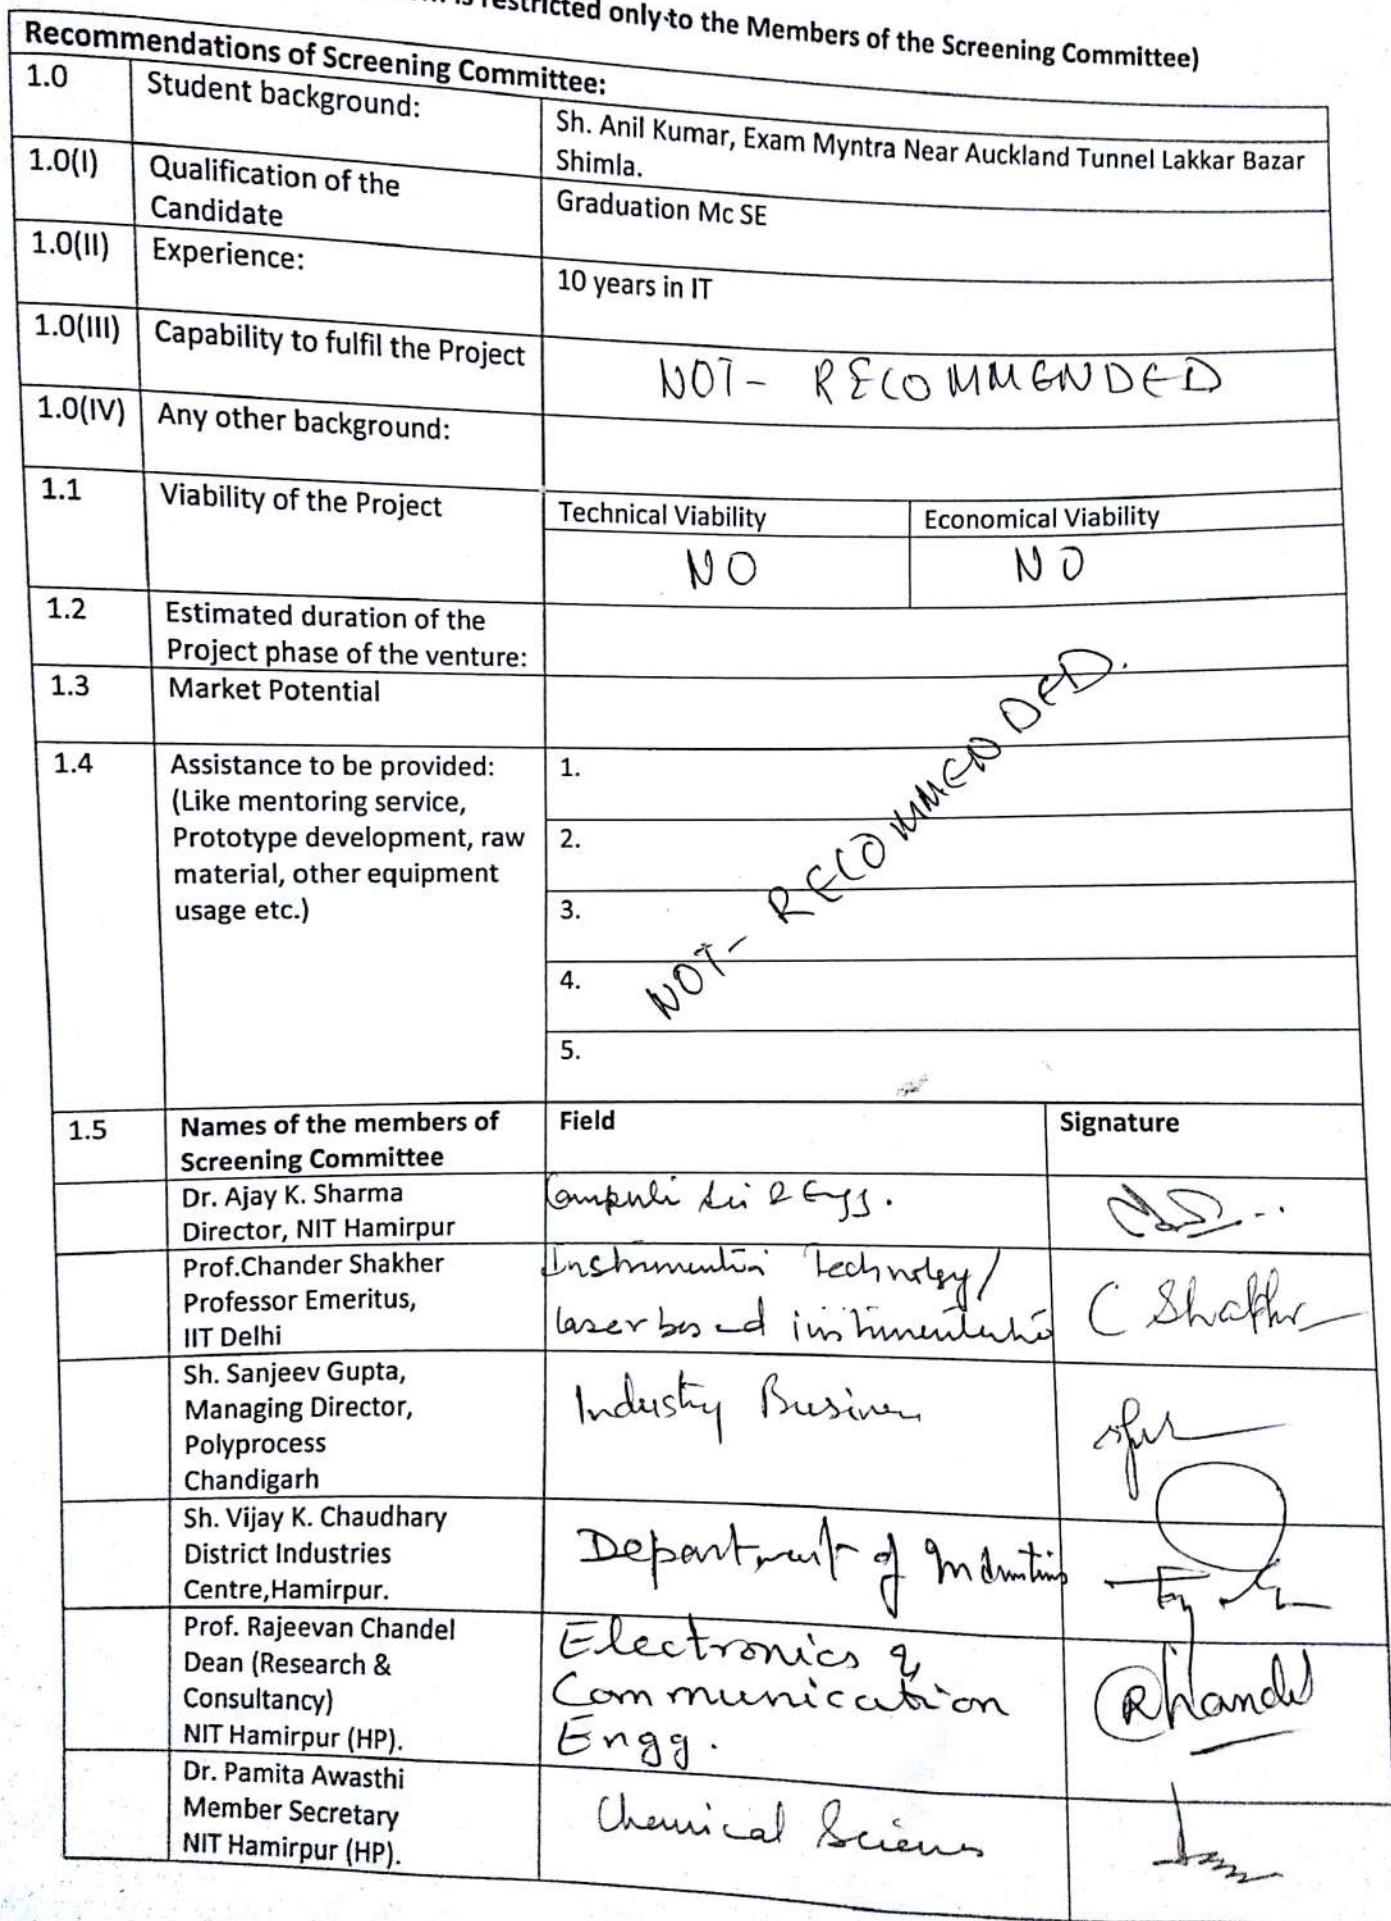 restricted only to the Members of the Screening Committee)
Recommendations of Screening Committee:
1.0 Student background:
Sh. Anil Kumar, Exam Myntra Near Auckland Tunnel Lakkar Bazar
Shimla.
1.0(I) Qualification of the
Candidate
Graduation Mc SE
1.0(II) Experience:
10 years in IT
1.0(III) Capability to fulfil the Project
NOT- RECOMMENDED
1.0(IV) Any other background:
1.1 Viability of the Project
Technical Viability Economical Viability
NO NO
1.2 Estimated duration of the
Project phase of the venture:
1.3 Market Potential
1.4 Assistance to be provided:
(Like mentoring service,
Prototype development, raw
material, other equipment
usage etc.)
1.
2.
3.
4.
5.
NOT- RECOMMENDED.
1.5 Names of the members of
Screening Committee
Field Signature
Dr. Ajay K. Sharma
Director, NIT Hamirpur
Engg.
Prof.Chander Shakher
Professor Emeritus,
IIT Delhi
Technology/
laser based
C Shakher
Sh. Sanjeev Gupta,
Managing Director,
Polyprocess
Chandigarh
Industry Business
Sh. Vijay K. Chaudhary
District Industries
Centre,Hamirpur.
Department of Industries
Prof. Rajeevan Chandel
Dean (Research &
Consultancy)
NIT Hamirpur (HP).
Electronics &
Communication
Engg.
RChandel
Dr. Pamita Awasthi
Member Secretary
NIT Hamirpur (HP).
Chemical Sciences